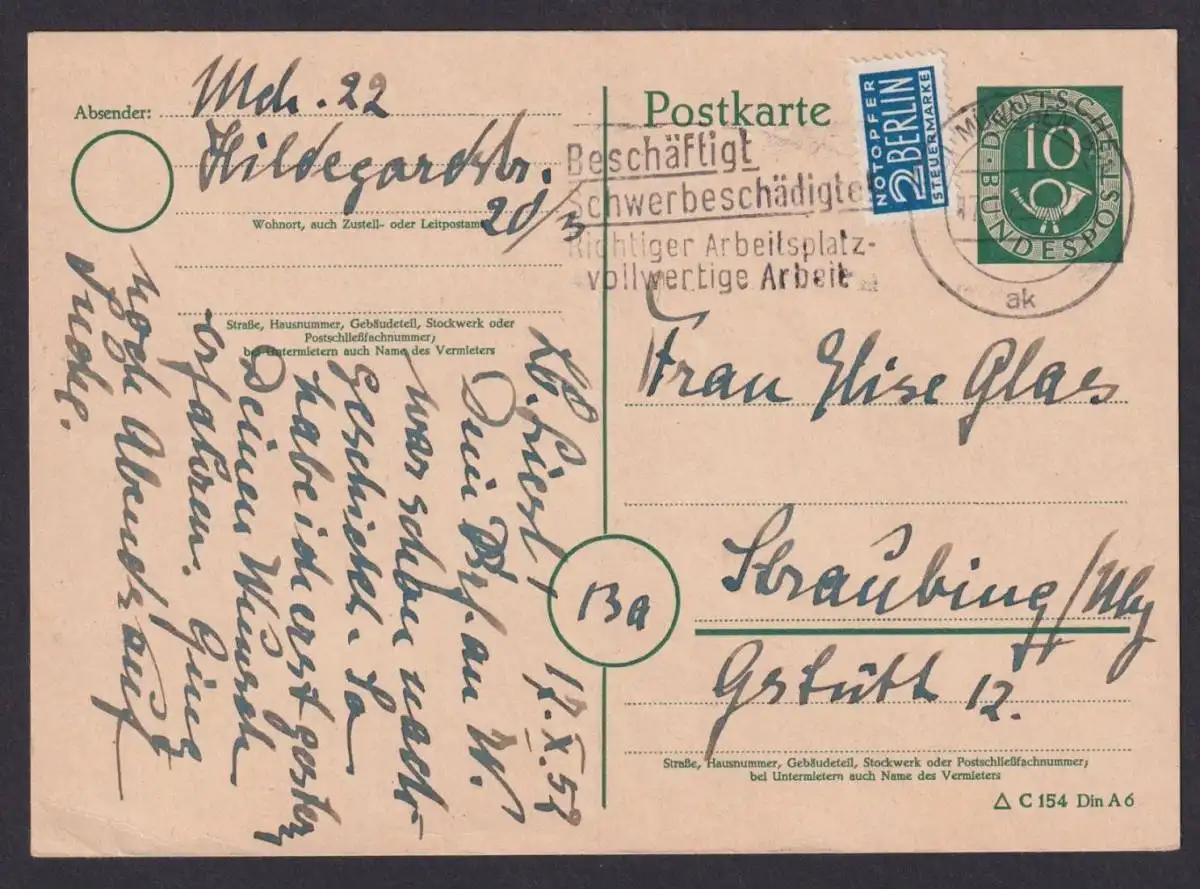 Absender:
Mch. 22
Hildegardstr.
Wohnort, auch Zustell- oder Leitpostamt
2d/3
Straße, Hausnummer, Gebäudeteil, Stockwerk oder
Postschließfachnummer;
bei Untermietern auch Name des Vermieters
Postkarte
NOTOPFER
2 BERLIN
STEUERMARKE
DEUTSCHE
BUNDESPOST
10
Beschäftigt
Schwerbeschädigte
Richtiger Arbeitsplatz-
vollwertige Arbeit
ak
Frau Elise Glas
Straubing/Nby
Gstütt 12.
Straße, Hausnummer, Gebäudeteil, Stockwerk oder Postschließfachnummer;
bei Untermietern auch Name des Vermieters
△ C 154 Din A 6
Ba
Lb. Liesl, 17.X.52
Dein Brf. an W.
war schon nach-
geschickt. So
habe ich erst gestern
Deinen Wunsch
erfahren. Ging
noch Abends auf